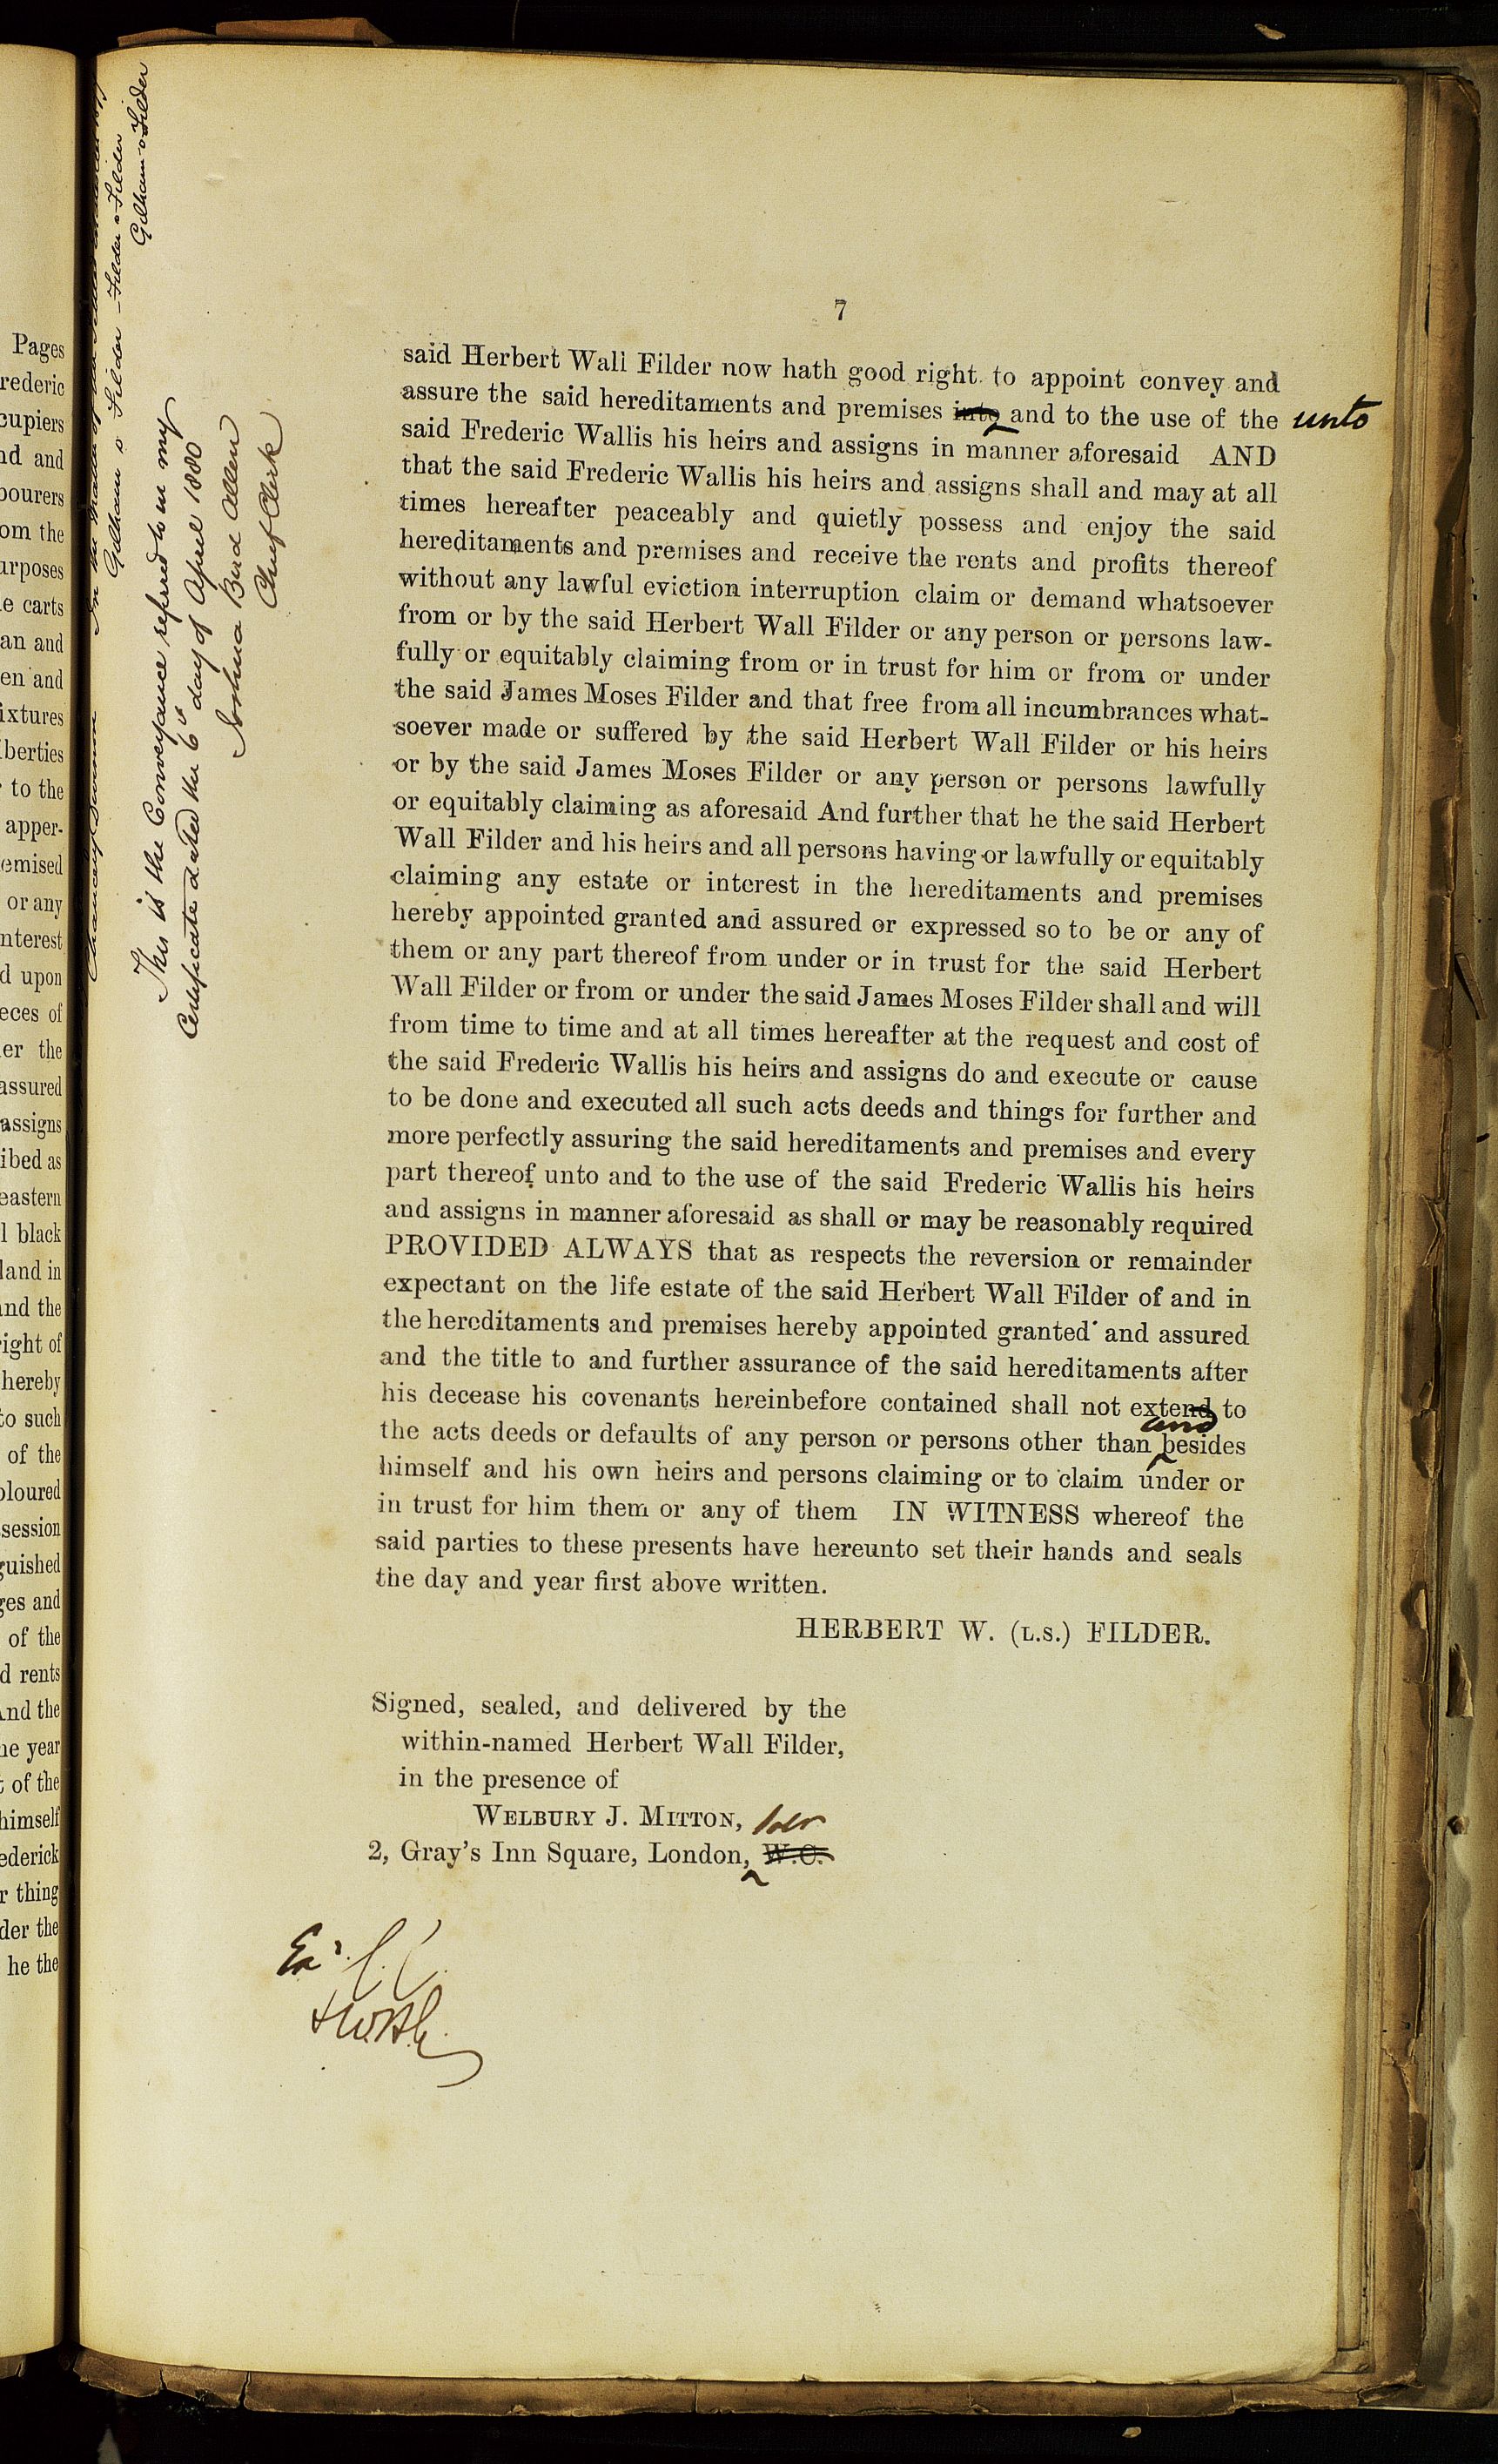 Pages
rederic
cupiers
nd and
bourers
om the
urposes
e carts
an and
en and
ixtures
iberties
to the
apper-
emised
or any
nterest
d upon
eces of
er the
assured
assigns
ibed as
eastern
l black
land in
nd the
right of
hereby
to such
of the
oloured
session
guished
ges and
of the
d rents
And the
he year
t of the
himself
ederick
r thing
der the
he the
Chancery Division In the Matter of
Gilham v Filder - Filder v Filder
Gilham v Filder
This is the Conveyance referred to in my
Certificate dated the 6th day of April 1880
Joshua Bird Allen
Chief Clerk
7
said Herbert Wall Filder now hath good right to appoint convey and
assure the said hereditaments and premises into and to the use of the unto
said Frederic Wallis his heirs and assigns in manner aforesaid AND
that the said Frederic Wallis his heirs and assigns shall and may at all
times hereafter peaceably and quietly possess and enjoy the said
hereditaments and premises and receive the rents and profits thereof
without any lawful eviction interruption claim or demand whatsoever
from or by the said Herbert Wall Filder or any person or persons law-
fully or equitably claiming from or in trust for him or from or under
the said James Moses Filder and that free from all incumbrances what-
soever made or suffered by the said Herbert Wall Filder or his heirs
or by the said James Moses Filder or any person or persons lawfully
or equitably claiming as aforesaid And further that he the said Herbert
Wall Filder and his heirs and all persons having or lawfully or equitably
claiming any estate or interest in the hereditaments and premises
hereby appointed granted and assured or expressed so to be or any of
them or any part thereof from under or in trust for the said Herbert
Wall Filder or from or under the said James Moses Filder shall and will
from time to time and at all times hereafter at the request and cost of
the said Frederic Wallis his heirs and assigns do and execute or cause
to be done and executed all such acts deeds and things for further and
more perfectly assuring the said hereditaments and premises and every
part thereof unto and to the use of the said Frederic Wallis his heirs
and assigns in manner aforesaid as shall or may be reasonably required
PROVIDED ALWAYS that as respects the reversion or remainder
expectant on the life estate of the said Herbert Wall Filder of and in
the hereditaments and premises hereby appointed granted and assured
and the title to and further assurance of the said hereditaments after
his decease his covenants hereinbefore contained shall not extend to
and
the acts deeds or defaults of any person or persons other than besides
himself and his own heirs and persons claiming or to claim under or
in trust for him them or any of them IN WITNESS whereof the
said parties to these presents have hereunto set their hands and seals
the day and year first above written.
HERBERT W. (L.S.) FILDER.
Signed, sealed, and delivered by the
within-named Herbert Wall Filder,
in the presence of
WELBURY J. MITTON,
2, Gray's Inn Square, London, W.C.